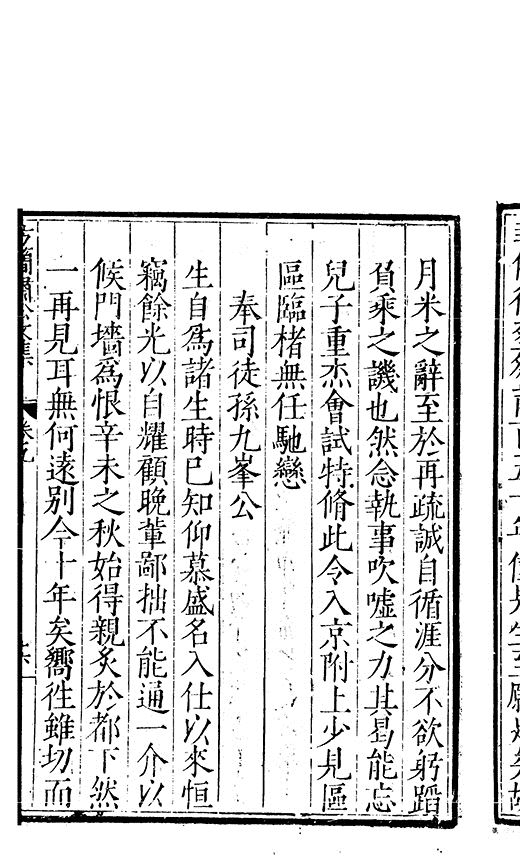 月米之辭至於再疏誠自循涯分不欲躬蹈
負乘之譏也然念執事吹噓之力其曷能忘
兒子重杰會試特脩此令入京附上少見區
區臨楮無任馳戀
奉司徒孫九峯公
生自爲諸生時已知仰慕盛名入仕以來恒
竊餘光以自耀顧晚輩鄙拙不能通一介以
候門墻爲恨辛未之秋始得親炙於都下然
一再見耳無何遠別今十年矣嚮徃雖切而
方簡肅公文集
卷九